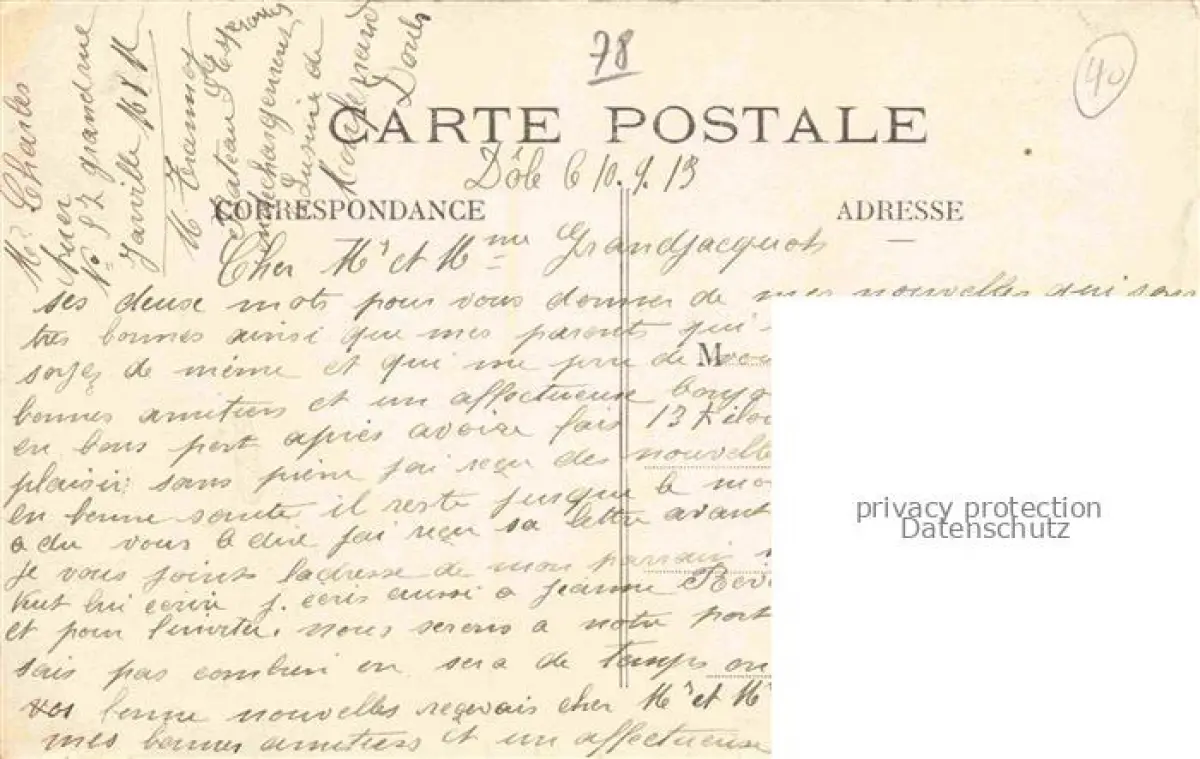 78
40
CARTE POSTALE
Dôle le 10.9.13
CORRESPONDANCE
ADRESSE
Mr Charles
No 57 grandrue
Janville M & M
M Tramot
Bateau l'Espérance
en déchargement
l'usine de
Doubs
Cher Mr et Mme Grandjacquots
ses deuse mots pour vous donner de mes nouvelles qui sons
tres bonnes ainsi que mes parents qui
M
soyez de mème et qui me prie de vou
bonnes amitiers et un affectueuse bonjo
en bons port après avoire fais 13 Kilo
plaisir: sans pière jai reçu des nouvelle
en bonne sante il reste jusque le mo
a du vous le dire jai reçu sa lettre avant
je vous joint ladresse de mon parrain
veut lui ecrire j. ecris aussi a Jeanne
et pour linviter. nous serons a notre port
sais pas combien on sera de temps on
vos bonne nouvelles reçevais cher Mr et M
mes bonnes amitiers et un affectueuse
privacy protection
Datenschutz